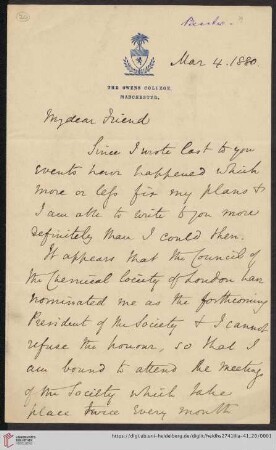 Mar 4. 1880
THE OWENS COLLEGE,
MANCHESTER.
My dear Friend
Since I wrote last to you
events have happened which
more or less fix my plans &
I am able to write to you more
definitely than I could then.
It appears that the Council of
the Chemical Society of London has
nominated me as the forthcoming
President of the Society & I cannot
refuse the honour, so that I
am bound to attend the meetings
of the Society which take
place twice every month